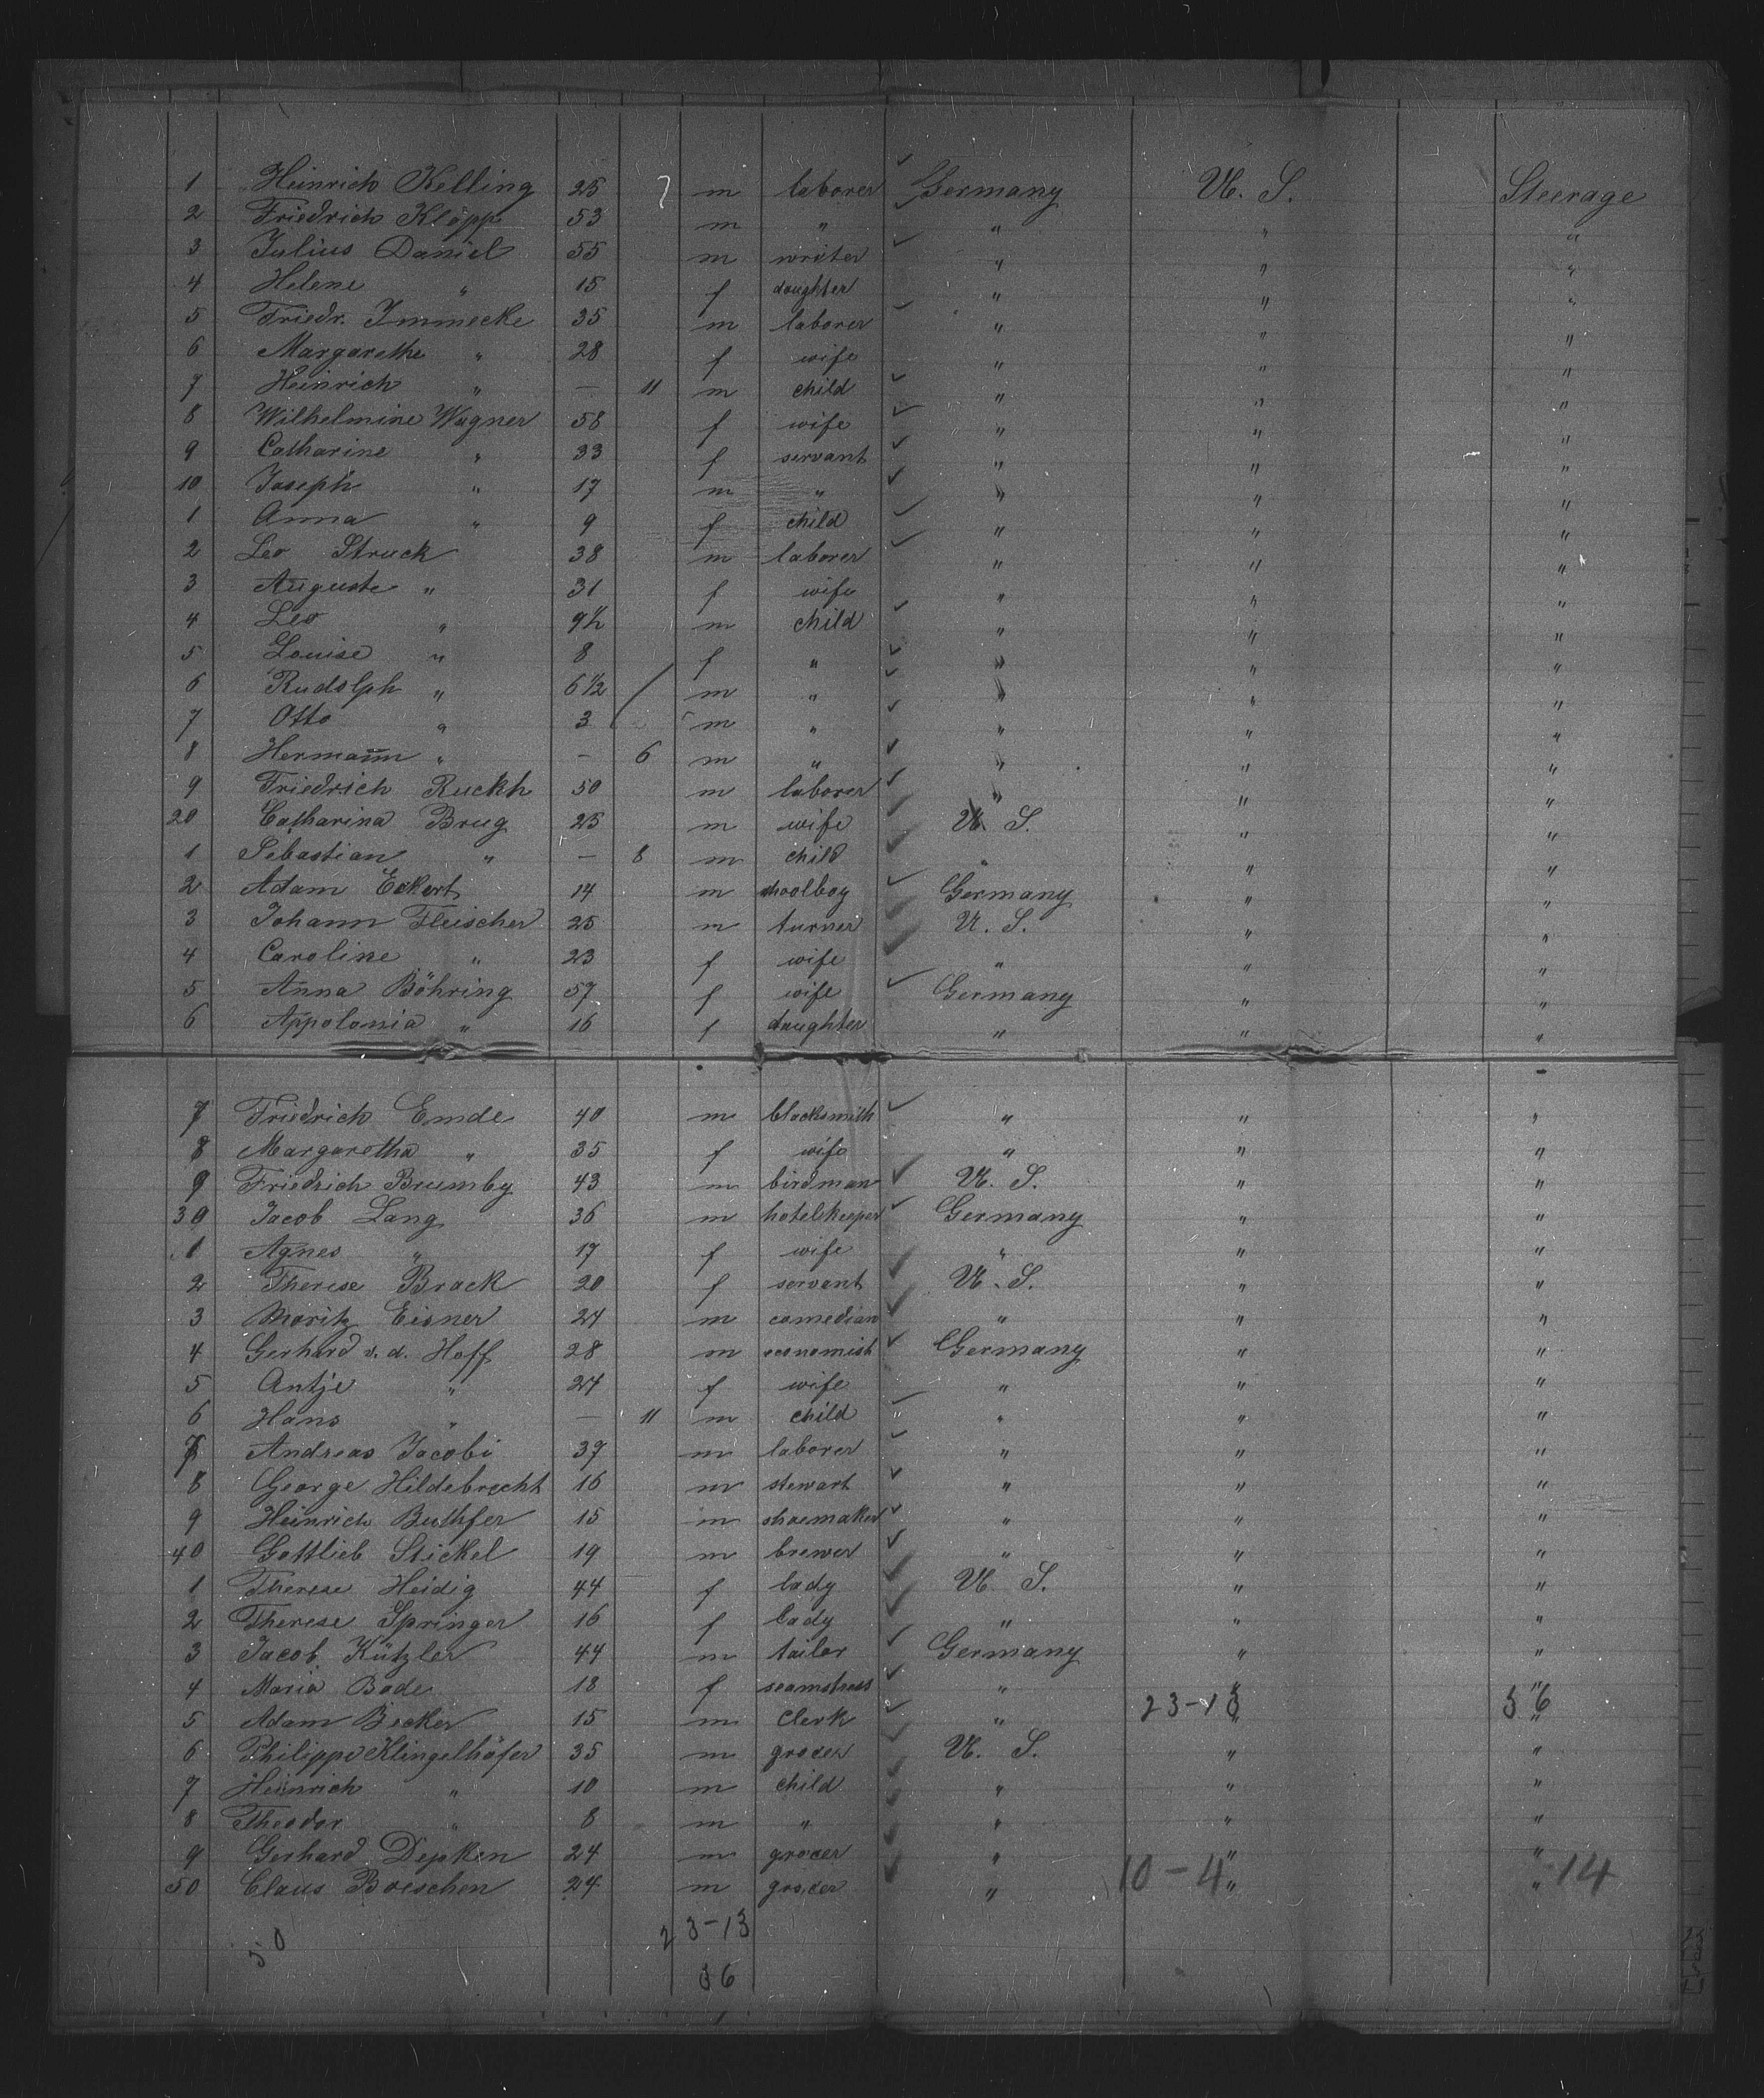 1 Heinrich Kelling 25 m laborer Germany U. S. Steerage
2 Friedrich Klöpp 53 m " " " "
3 Julius Daniel 55 m writer " " "
4 Helene " 15 f daughter " " "
5 Friedr. Immecke 35 m laborer " " "
6 Margarethe " 28 f wife " " "
7 Heinrich " — 11 m child " " "
8 Wilhelmine Wagner 58 f wife " " "
9 Catharine " 33 f servant " " "
10 Joseph " 17 m " " " "
1 Anna " 9 f child " " "
2 Leo Struck 38 m laborer " " "
3 Auguste " 31 f wife " " "
4 Leo " 9½ m child " " "
5 Louise " 8 f " " " "
6 Rudolph " 6½ m " " " "
7 Otto " 3 m " " " "
8 Hermann " — 6 m " " " "
9 Friedrich Ruckh 50 m laborer " " "
20 Catharina Brug 25 m wife U. S. " "
1 Sebastian " — 8 m child " " "
2 Adam Eckert 14 m schoolboy Germany " "
3 Johann Fleischer 25 m turner U. S. " "
4 Caroline " 23 f wife " " "
5 Anna Böhring 57 f wife Germany " "
6 Appolonia " 16 f daughter " " "
7 Friedrich Emde 40 m blacksmith " " "
8 Margaretha " 35 f wife " " "
9 Friedrich Brumby 43 m birdman U. S. " "
30 Jacob Lang 36 m hotelkeeper Germany " "
1 Agnes " 17 f wife " " "
2 Therese Brack 20 f servant U. S. " "
3 Moritz Eisner 24 m comedian " " "
4 Gerhard v. d. Hoff 28 m economist Germany " "
5 Antje " 24 f wife " " "
6 Hans " — 11 m child " " "
7 Andreas Jacobi 37 m laborer " " "
8 George Hildebrecht 16 m stewart " " "
9 Heinrich 15 m shoemaker " " "
40 Gottlieb Stickel 19 m brewer " " "
1 Therese Heidig 44 f lady U. S. " "
2 Therese Springer 16 f lady " " "
3 Jacob Kützler 44 m tailor Germany " "
4 Maria Bode 18 f seamstress " " "
5 Adam Becker 15 m Clerk " 23-13 " 36 "
6 Philipp Klingelhöfer 35 m grocer U. S. " "
7 Heinrich " 10 m child " " "
8 Theodor " 8 m " " " "
9 Gerhard Depken 24 m grocer " " "
50 Claus Boeschen 24 m grocer " 10-4 " " 14
50 23-13
36